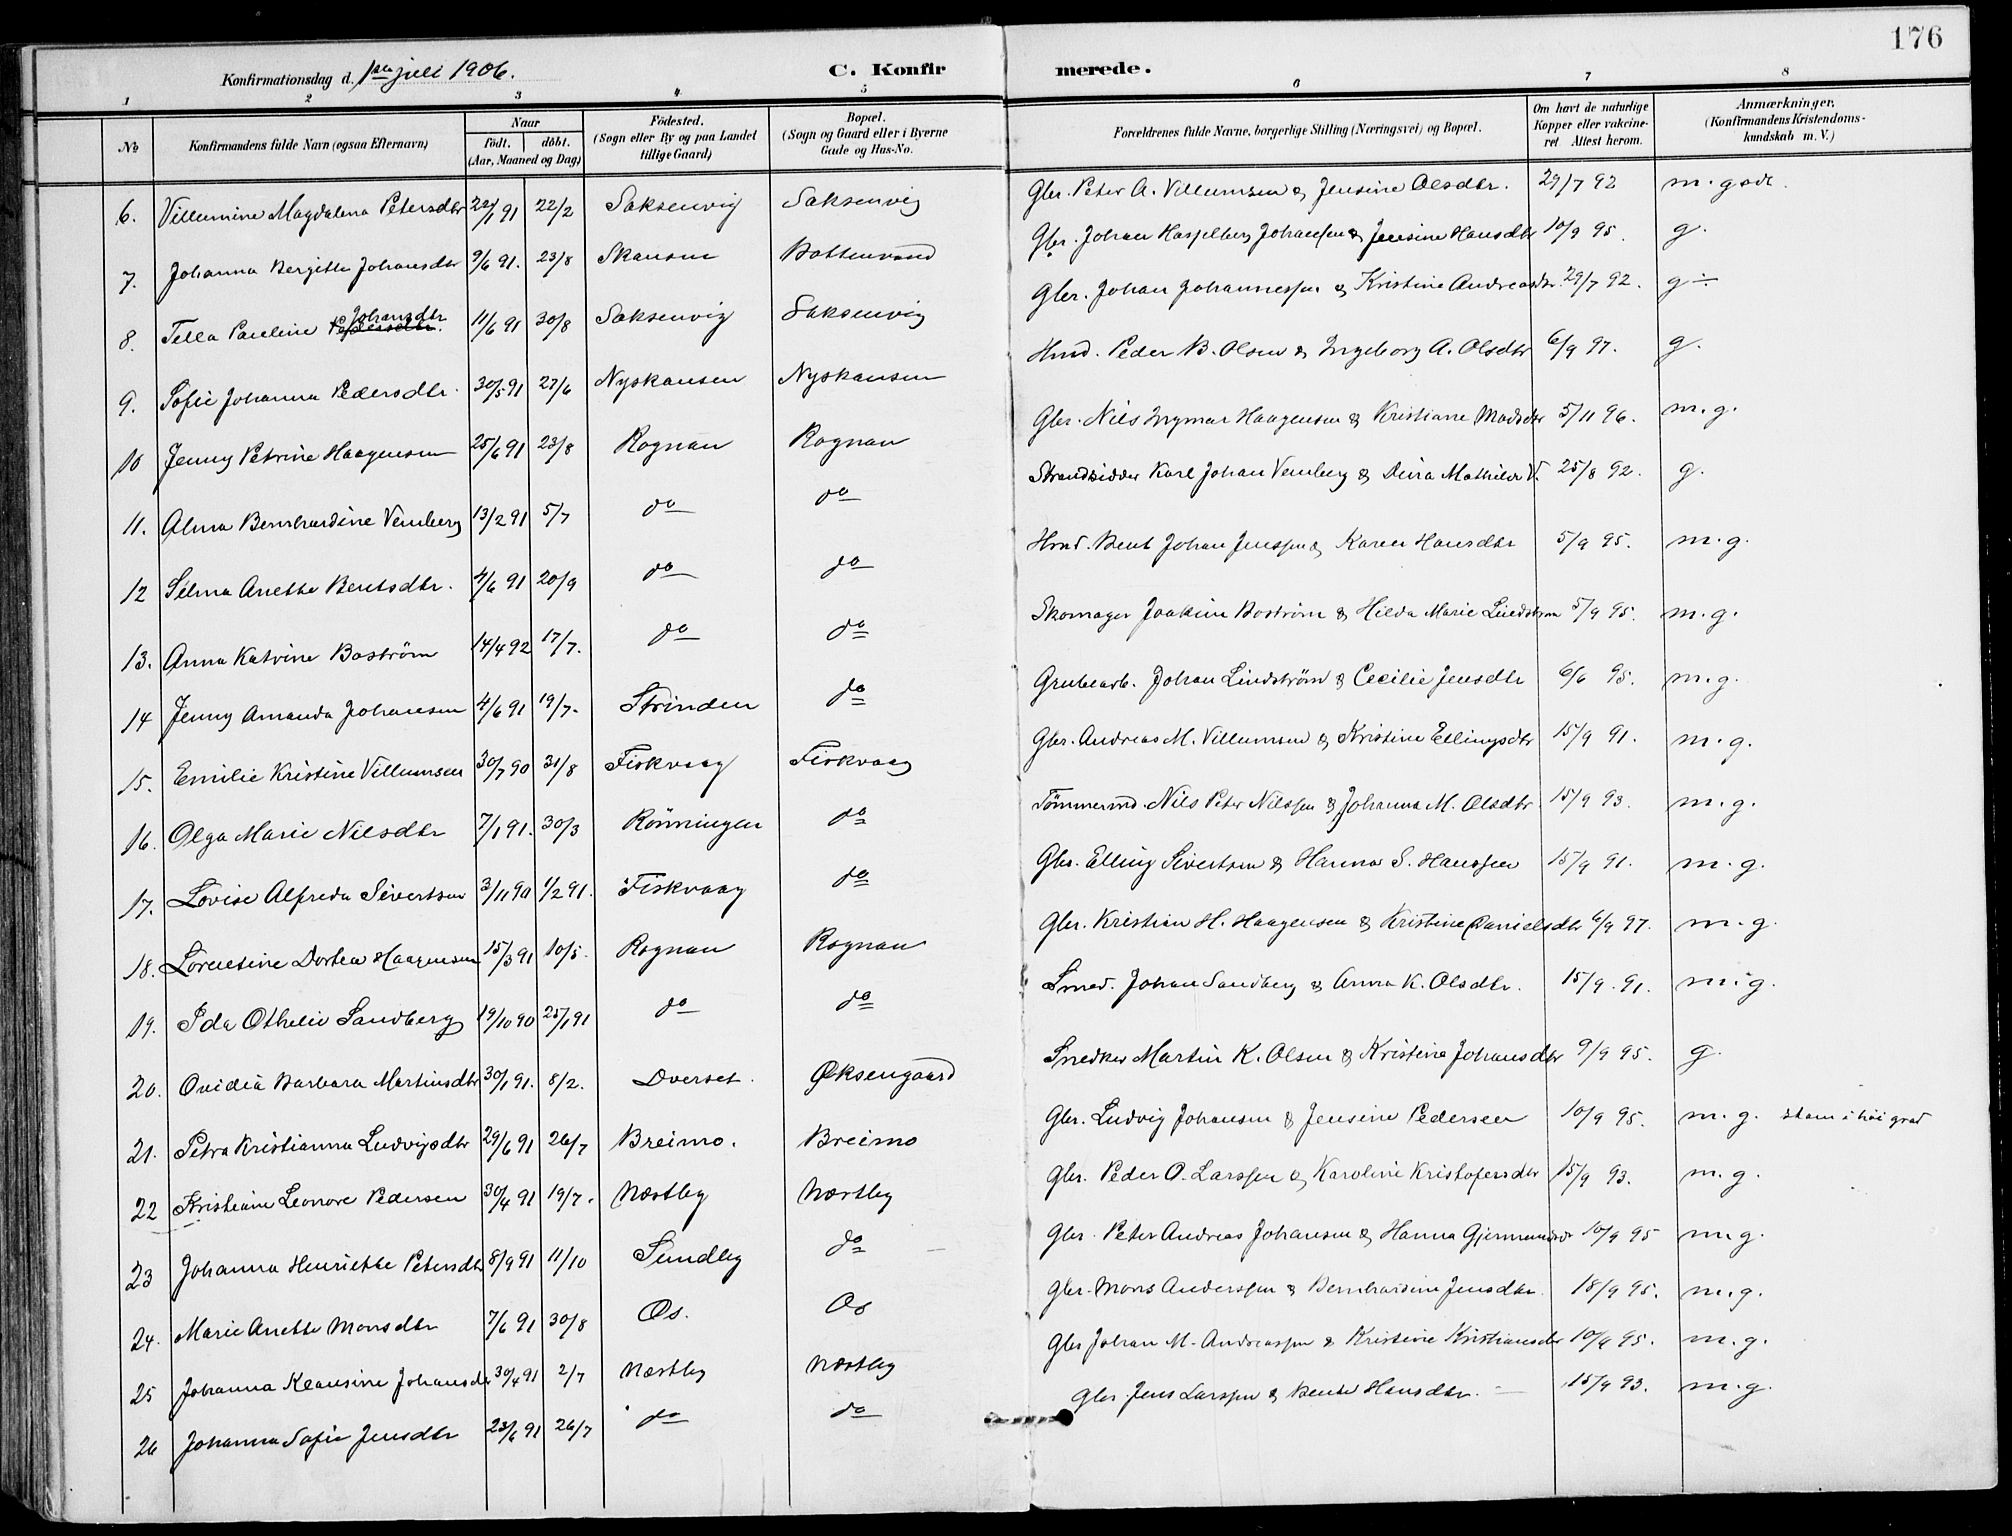 176
Konfirmationsdag d. 1ste juli 1906. C. Konfirmerede.
1 2 3 4 5 6 7 8
No Konfirmandens fulde Navn (ogsaa Efternavn) Naar født. døbt. (Aar, Maaned og Dag) Fødested. (Sogn eller By og paa Landet tillige Gaard) Bopæl. (Sogn og Gaard eller i Byerne Gade og Hus-No. Forældrenes fulde Navne, borgerlige Stilling (Næringsvei) og Bopæl. Om havt de naturlige Kopper eller vakcineret Attest herom. Anmærkninger, (Konfirmandens Kristendomskundskab m. V.)
6. Villumine Magdalena Petersdtr 22/1 91 22/2 Saksenvig Saksenvig Gbr. Peter A. Villumsen & Jensine Olsdtr. 29/7 92 m. godt.
7. Johanna Bergitte Johansdtr 9/6 91. 23/8 Skansen Bottenvand Gbr. Johan Hasselberg Johansen & Jensine Hansdtr 10/9 95. g.
8. Tella Pauline Pedersdtr. Johansdtr 11/6 91 30/8 Saksenvig Saksenvig Gbr. Johan Johannessen & Kristine Andreasdtr 29/7 92. g ÷
9. Sofie Johanna Pedersdtr. 30/5 91 27/6 Nyskansen Nyskansen Hmd. Peder B. Olsen & Ingeborg A. Olsdtr 6/9 97. g.
10 Jenny Petrine Haagensen 25/6 91 23/8 Rognan Rognan Gbr. Nils Ingmar Haagensen & Kristiane Madsdtr 5/11 96. m. g.
11. Alma Bernhardine Vemberg 13/2 91 5/7 do do Strandsidder Karl Johan Vemberg & Dina Mathilde V. 25/8 92. g.
12 Selma Anette Bentsdtr. 4/6 91 20/9 do do Hmd. Bent Johan Jenssen & Karen Hansdtr 5/9 95. m. g.
13. Anna Katrine Boström 14/4 92 17/7. do do Skomager Joakim Boström & Hilda Marie Lindström 5/9 95. m. g.
14 Jenny Amanda Johansen 4/6 91 19/7. Strinden do Grubearb. Johan Lindström & Cecilie Jensdtr 6/6 95. m. g.
15. Emilie Kristine Villumsen 30/7 90 31/8 Fiskvaag Fiskvaag Gbr. Andreas M. Villumsen & Kristine Ellingsdtr 15/9 91. m. g.
16. Olga Marie Nilsdtr 7/1 91. 30/3 Rönningen do Tömmermd. Nils Peter Nilssen & Johanna M. Olsdtr 15/9 93. m. g.
17. Lovise Alfreda Sivertsen 3/11 90 1/2 91. Fiskvaag do Gbr. Elling Sivertsen & Hanna S. Hanssen 15/9 91. m. g.
18. Lorentine Dortea Haagensen 15/3 91 10/5. Rognan Rognan Gbr. Kristian H. Haagensen & Kristine Danielsdtr 6/9 97. m. g.
19. Ida Othelie Sandberg 19/10 90 25/1 91 do do Smed. Johan Sandberg & Anna K. Olsdtr. 15/9. 91. m. g.
20. Ovidia Barbara Martinsdtr 30/1 91. 8/2. Dverset. Øksengaard Snedker Martin K. Olsen & Kristine Johansdtr 9/9 95. g.
21. Petra Kristianna Ludvigsdtr 29/6 91 26/7 Breimo. Breimo Gbr. Ludvig Johansen & Jensine Pedersen 10/9 95. m. g. stam i høi grad
22 Kristiane Leonore Pedersen 30/4 91 19/7. Næstby Næstby Gbr. Peder O. Larssen & Karoline Kristofersdtr 15/9 93. m. g.
23 Johanna Henriette Petersdtr 8/9 91 11/10 Sundby do Gbr. Peter Andreas Johansen & Hanna Gjermundsd 10/9 95 m. g.
24. Marie Anette Monsdtr 7/6 91 30/8 Os. Os Gbr. Mons Anderssen & Bernhardine Jensdtr. 18/9 95. m. g.
25 Johanna Klausine Johansdr 30/4 91 2/7 Næstby Næstby Gbr Johan M. Andreassen & Kristine Kristiansdtr 10/9 95. m. g.
26 Johanna Sofie Jensdtr 23/6 91 26/7 do do Gbr. Jens Larssen & Bente Hansdtr. 15/9 93. m. g.